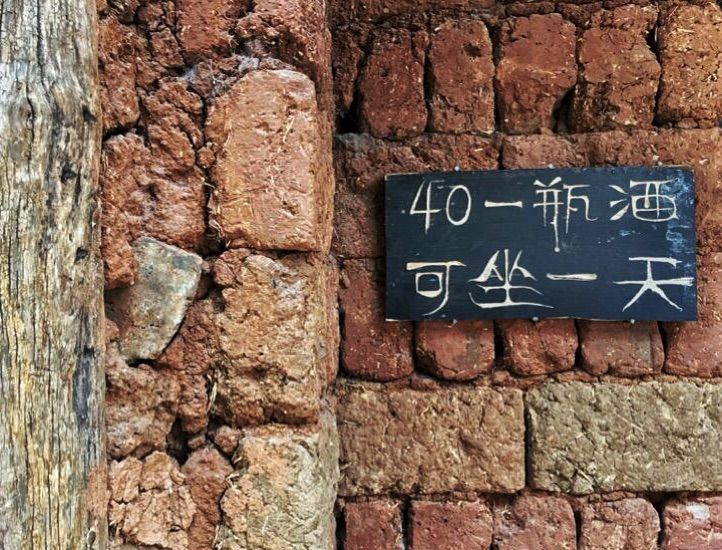 40一瓶酒
可坐一天